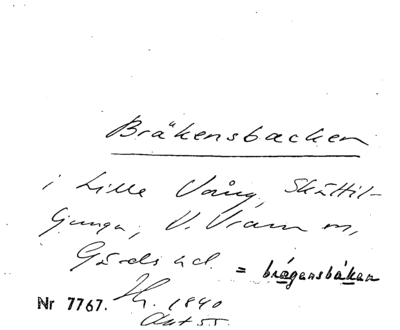 Bräkensbacken
i Lille Vång, Skättil-
ljunga, V. Vram sn,
Gärds hd. = brágensbákan
Nr 7767. Hr. 1840
Akt 55